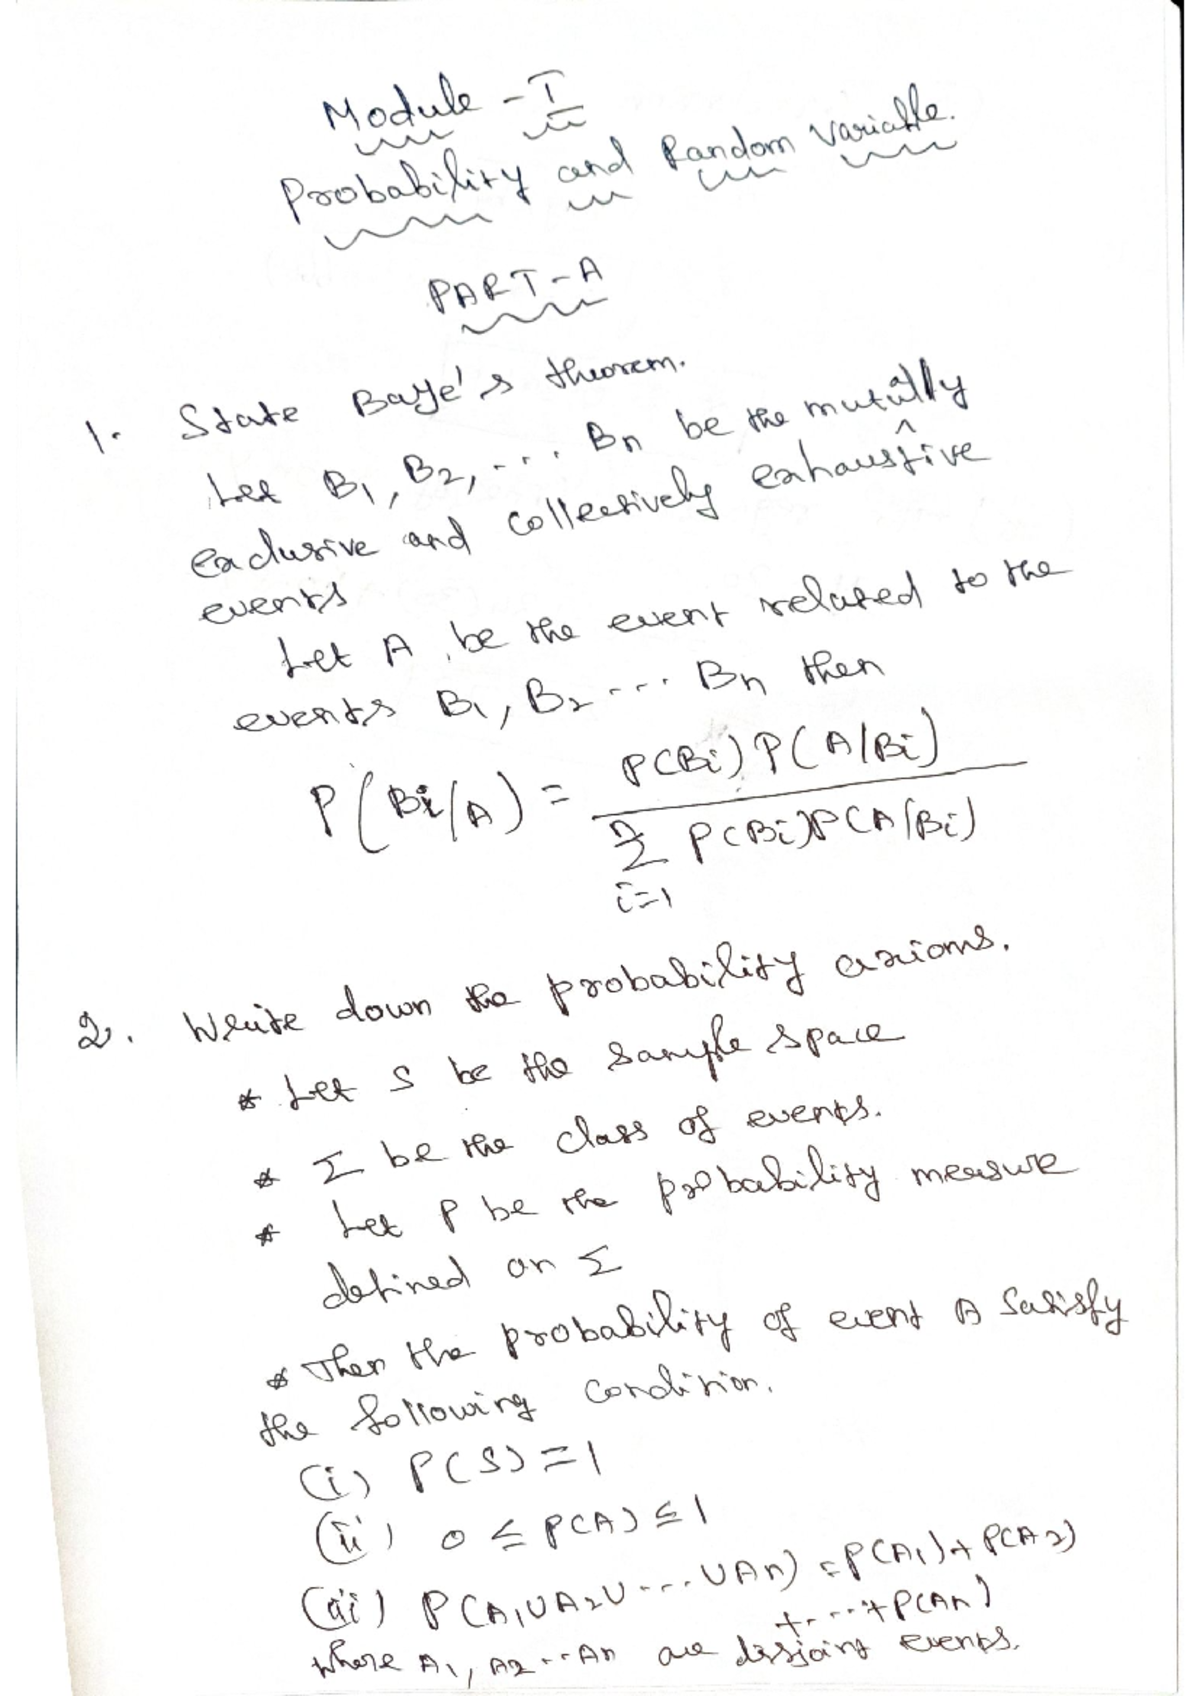 Module - I
Probability and Random Variable.
PART-A
1. State Baye's theorem.
Let B1, B2, ... Bn be the mutually
exclusive and collectively exhaustive
events
Let A be the event related to the
events B1, B2 ... Bn then
P(Bi/A) = P(Bi) P(A/Bi)
n
Σ P(Bi)P(A/Bi)
i=1
2. Write down the probability axioms.
* Let S be the sample space
* Σ be the class of events.
* Let P be the probability measure
defined on Σ
* Then the probability of event A satisfy
the following condition.
(i) P(S) = 1
(ii) 0 ≤ P(A) ≤ 1
(iii) P(A1UA2U...UAn) = P(A1) + P(A2)
+...+P(An)
where A1, A2...An are disjoint events.